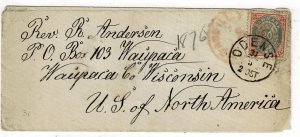 Rev. R. Andersen
P.O. Box 103 Waupaca
Waupaca Co Wisconsin
U.S. of North America
1876
ODENSE
2 OCT
31